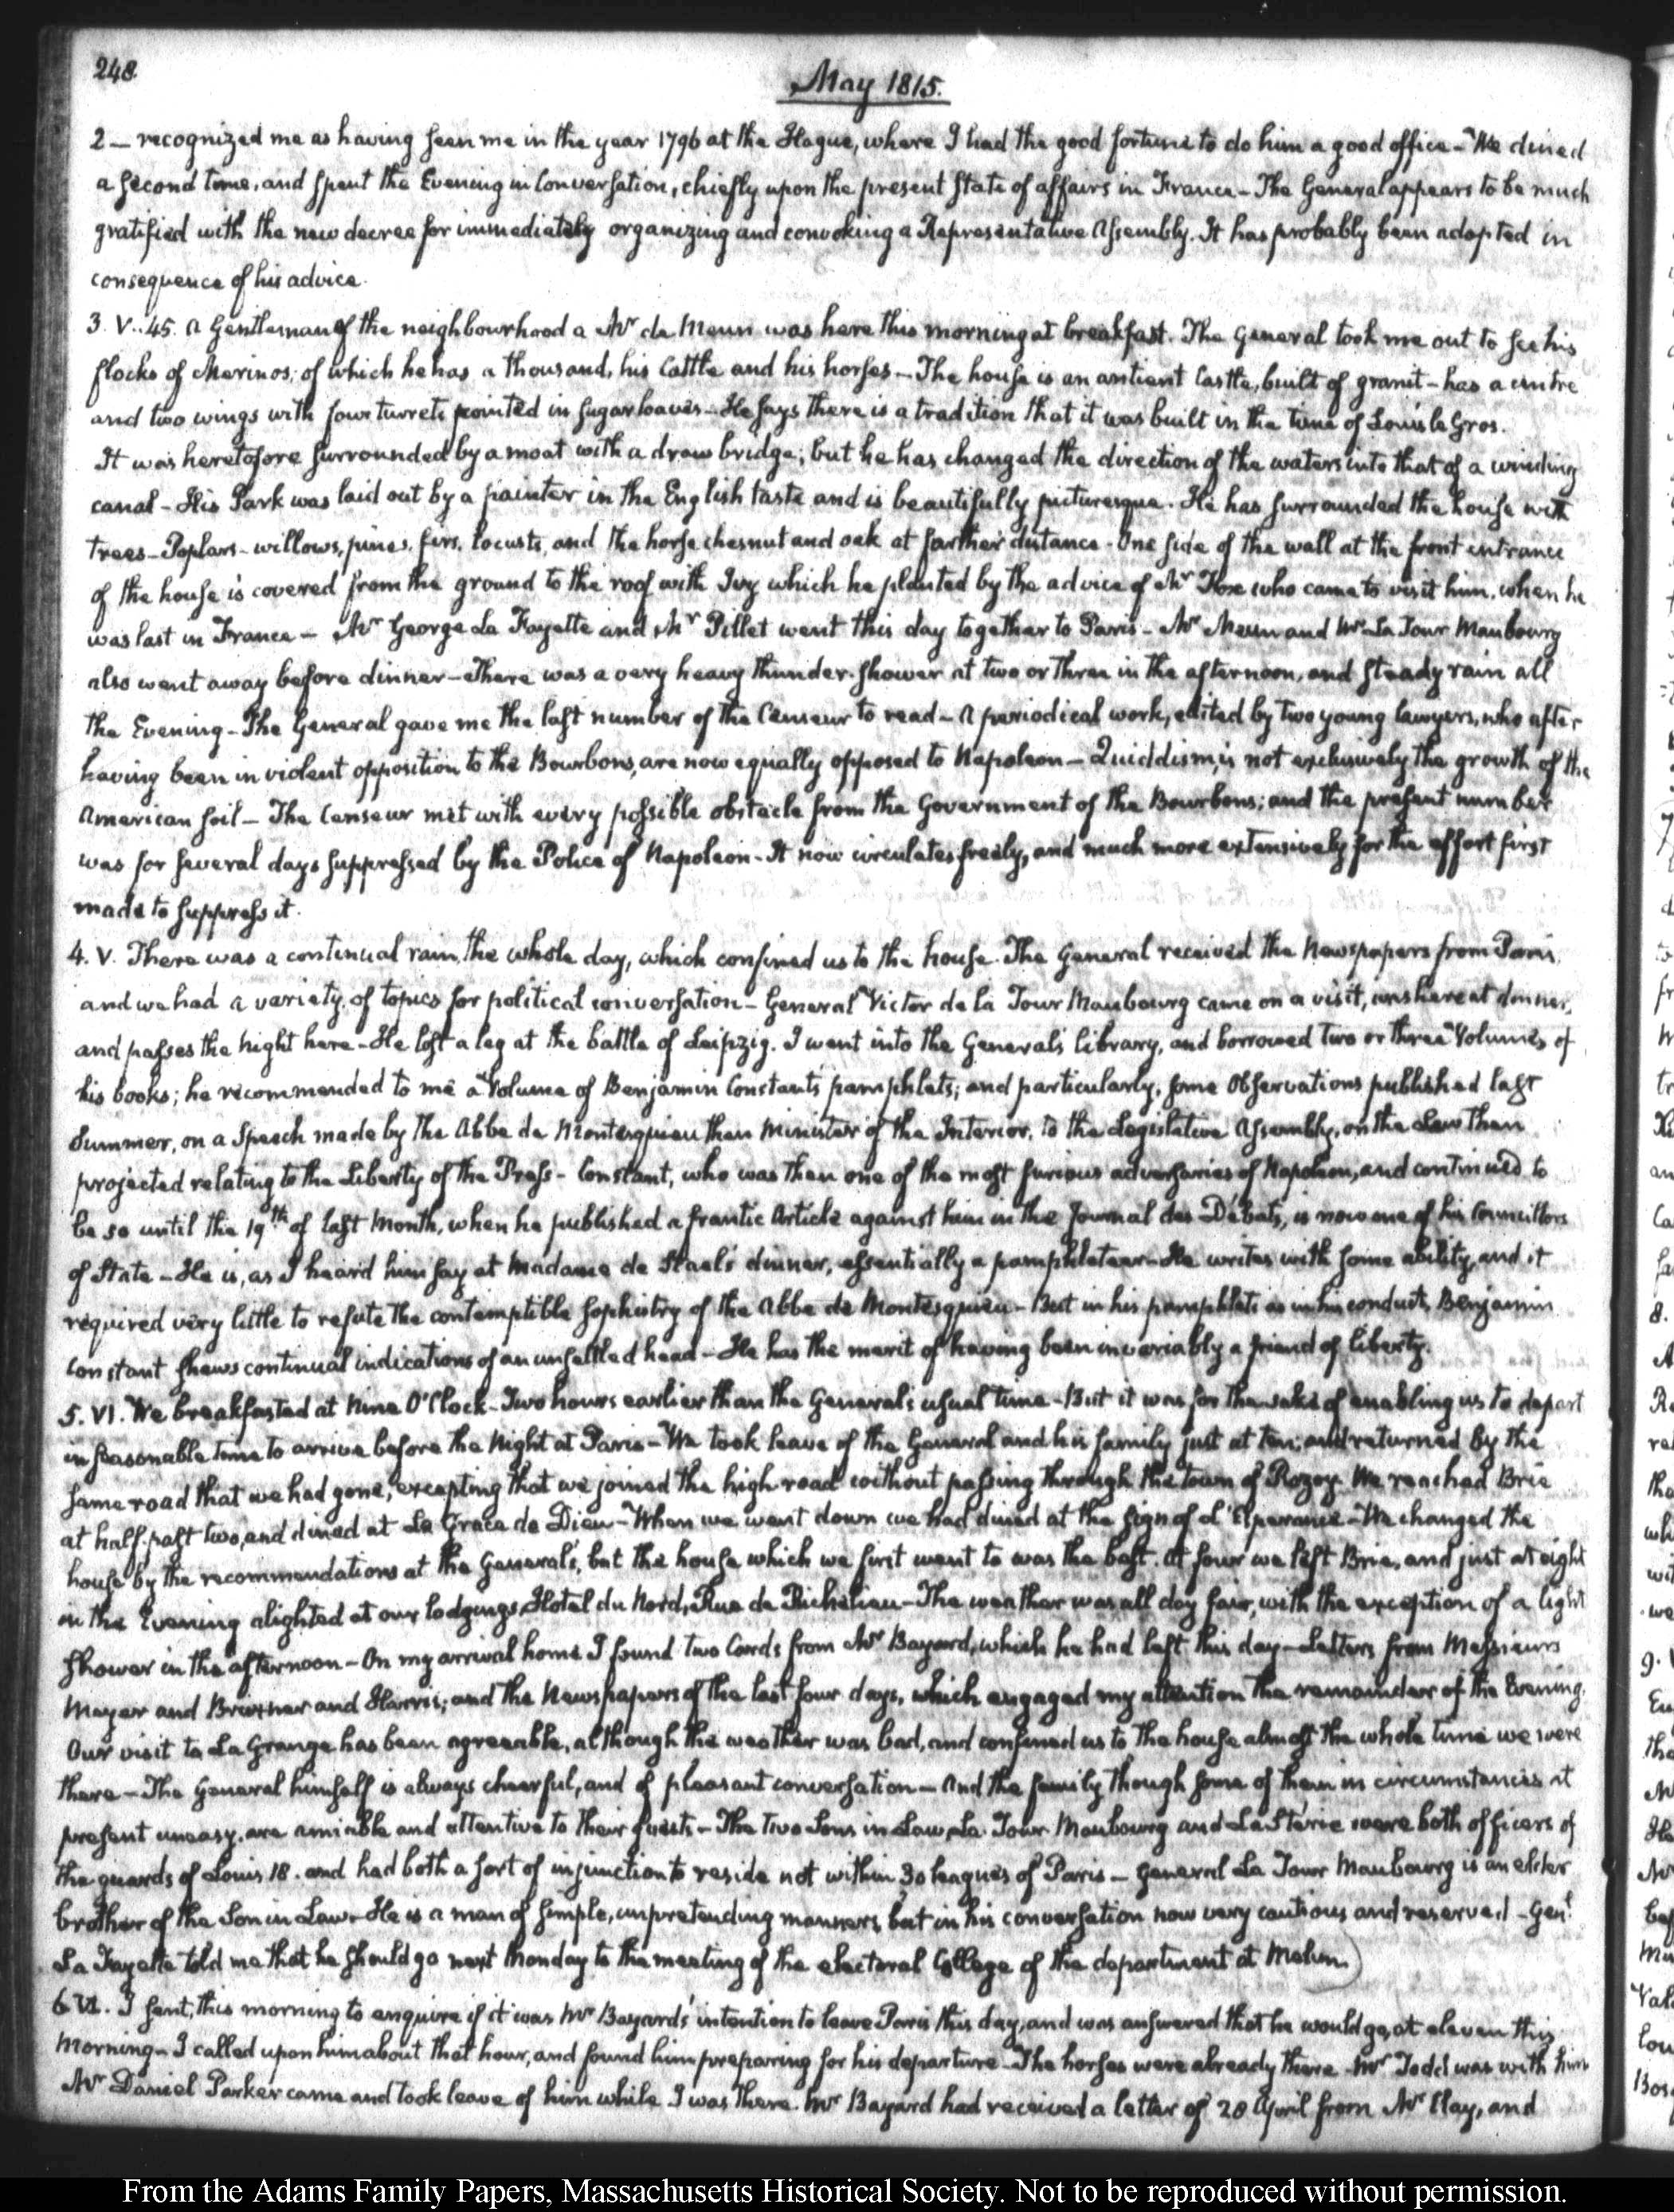 248.
May 1815.
2 — recognized me as having seen me in the year 1796 at the Hague, where I had the good fortune to do him a good office – We dined
a second time, and spent the Evening in Conversation, chiefly upon the present state of affairs in France – The General appears to be much
gratified with the new decree for immediately organizing and convoking a Representative Assembly. It has probably been adopted in
consequence of his advice.
3. V..45. A Gentleman of the neighbourhood a Mr de Meun was here this morning at breakfast. The General took me out to see his
flocks of Merinos; of which he has a thousand, his Cattle and his horses – The house is an antient Castle, built of granit – has a centre
and two wings with four turrets pointed in sugar loaves – He says there is a tradition that it was built in the time of Louis le Gros.
It was heretofore surrounded by a moat with a draw bridge; but he has changed the direction of the waters into that of a winding
canal – His Park was laid out by a painter in the English taste and is beautifully picturesque. He has surrounded the house with
trees – Poplars – willows, pines, firs, locusts, and the horse chesnut and oak at farther distance – One side of the wall at the front entrance
of the house is covered from the ground to the roof with Ivy which he planted by the advice of Mr Fox who came to visit him, when he
was last in France – Mr George La Fayette and Mr Pillet went this day together to Paris – Mr Meun and Mr La Tour Maubourg
also went away before dinner – There was a very heavy thunder-shower at two or three in the afternoon, and steady rain all
the Evening – The General gave me the last number of the Censeur to read – A periodical work, edited by two young lawyers, who after
having been in violent opposition to the Bourbons, are now equally opposed to Napoleon – Quiddism, is not exclusively the growth of the
American soil – The Censeur met with every possible obstacle from the Government of the Bourbons; and the present number
was for several days suppressed by the Police of Napoleon – It now circulates freely, and much more extensively for the effort first
made to suppress it.
4. V. There was a continual rain, the whole day, which confined us to the house. The General received the Newspapers from Paris,
and we had a variety of topics for political conversation – General Victor de la Tour Maubourg came on a visit, was here at dinner,
and passes the night here – He lost a leg at the battle of Leipzig. I went into the General's library, and borrowed two or three Volumes of
his books; he recommended to me a Volume of Benjamin Constant's pamphlets; and particularly, some Observations published last
Summer, on a Speech made by the Abbe de Montesquieu then Minister of the Interior, to the Legislative Assembly, on the Law then
projected relating to the Liberty of the Press – Constant, who was then one of the most furious adversaries of Napoleon, and continued to
be so until the 19th of last Month, when he published a frantic Article against him in the Journal des Débats, is now one of his Councillors
of State – He is, as I heard him say at Madame de Stael's dinner, essentially a pamphleteer – He writes with some ability, and it
required very little to refute the contemptible sophistry of the Abbe de Montesquieu – But in his pamphlets as in his conduct, Benjamin
Constant shews continual indications of an unsettled head – He has the merit of having been invariably a friend of liberty.
5. VI. We breakfasted at Nine O'Clock – Two hours earlier than the General's usual time – But it was for the sake of enabling us to depart
in seasonable time to arrive before the Night at Paris – We took leave of the General and his family just at ten; and returned by the
same road that we had gone, excepting that we joined the high road without passing through the town of Rozoy. We reached Brie
at half past two, and dined at La Grace de Dieu – When we went down we had dined at the sign of l'Esperance – We changed the
house by the recommendations at the General's, but the house which we first went to was the best. At four we left Brie, and just at eight
in the Evening alighted at our lodgings, Hotel du Nord, Rue de Richelieu – The weather was all day fair, with the exception of a light
shower in the afternoon – On my arrival home I found two Cards from Mr Bayard, which he had left this day – Letters from Messieurs
Meyer and Bruxner and Harris; and the Newspapers of the last four days, which engaged my attention the remainder of the Evening.
Our visit to La Grange has been agreeable, although the weather was bad, and confined us to the house almost the whole time we were
there – The General himself is always cheerful, and of pleasant conversation – And the family though some of them in circumstances at
present uneasy, are amiable and attentive to their guests – The two Sons in Law, La Tour Maubourg and LaSterie were both officers of
the guards of Louis 18. and had both a sort of injunction to reside not within 30 leagues of Paris – General La Tour Maubourg is an elder
brother of the Son in Law – He is a man of simple, unpretending manners, but in his conversation now very cautious and reserved – Genl.
La Fayette told me that he should go next Monday to the meeting of the electoral College of the department at Melun.
6. VI. I sent, this morning to enquire if it was Mr Bayard's intention to leave Paris this day, and was answered that he would go, at eleven this
Morning – I called upon him about that hour, and found him preparing for his departure – The horses were already there. Mr Todd was with him
Mr Daniel Parker came and took leave of him while I was there. Mr Bayard had received a letter of 28 April from Mr Clay, and
From the Adams Family Papers, Massachusetts Historical Society. Not to be reproduced without permission.